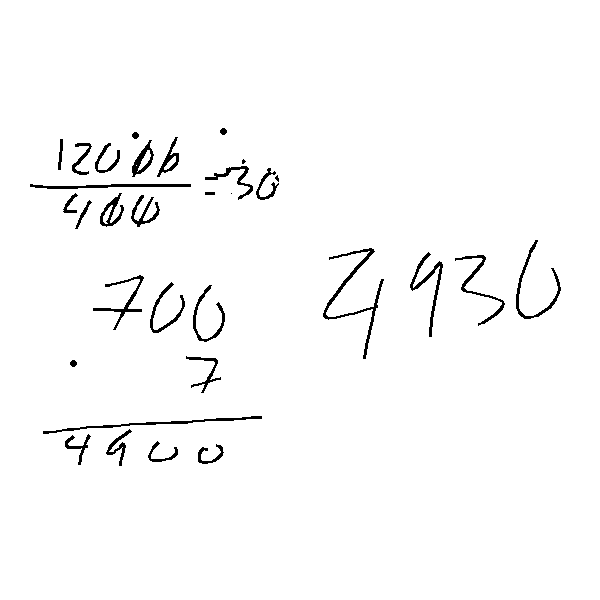 12000
400 = 30
700
7
4900
4930